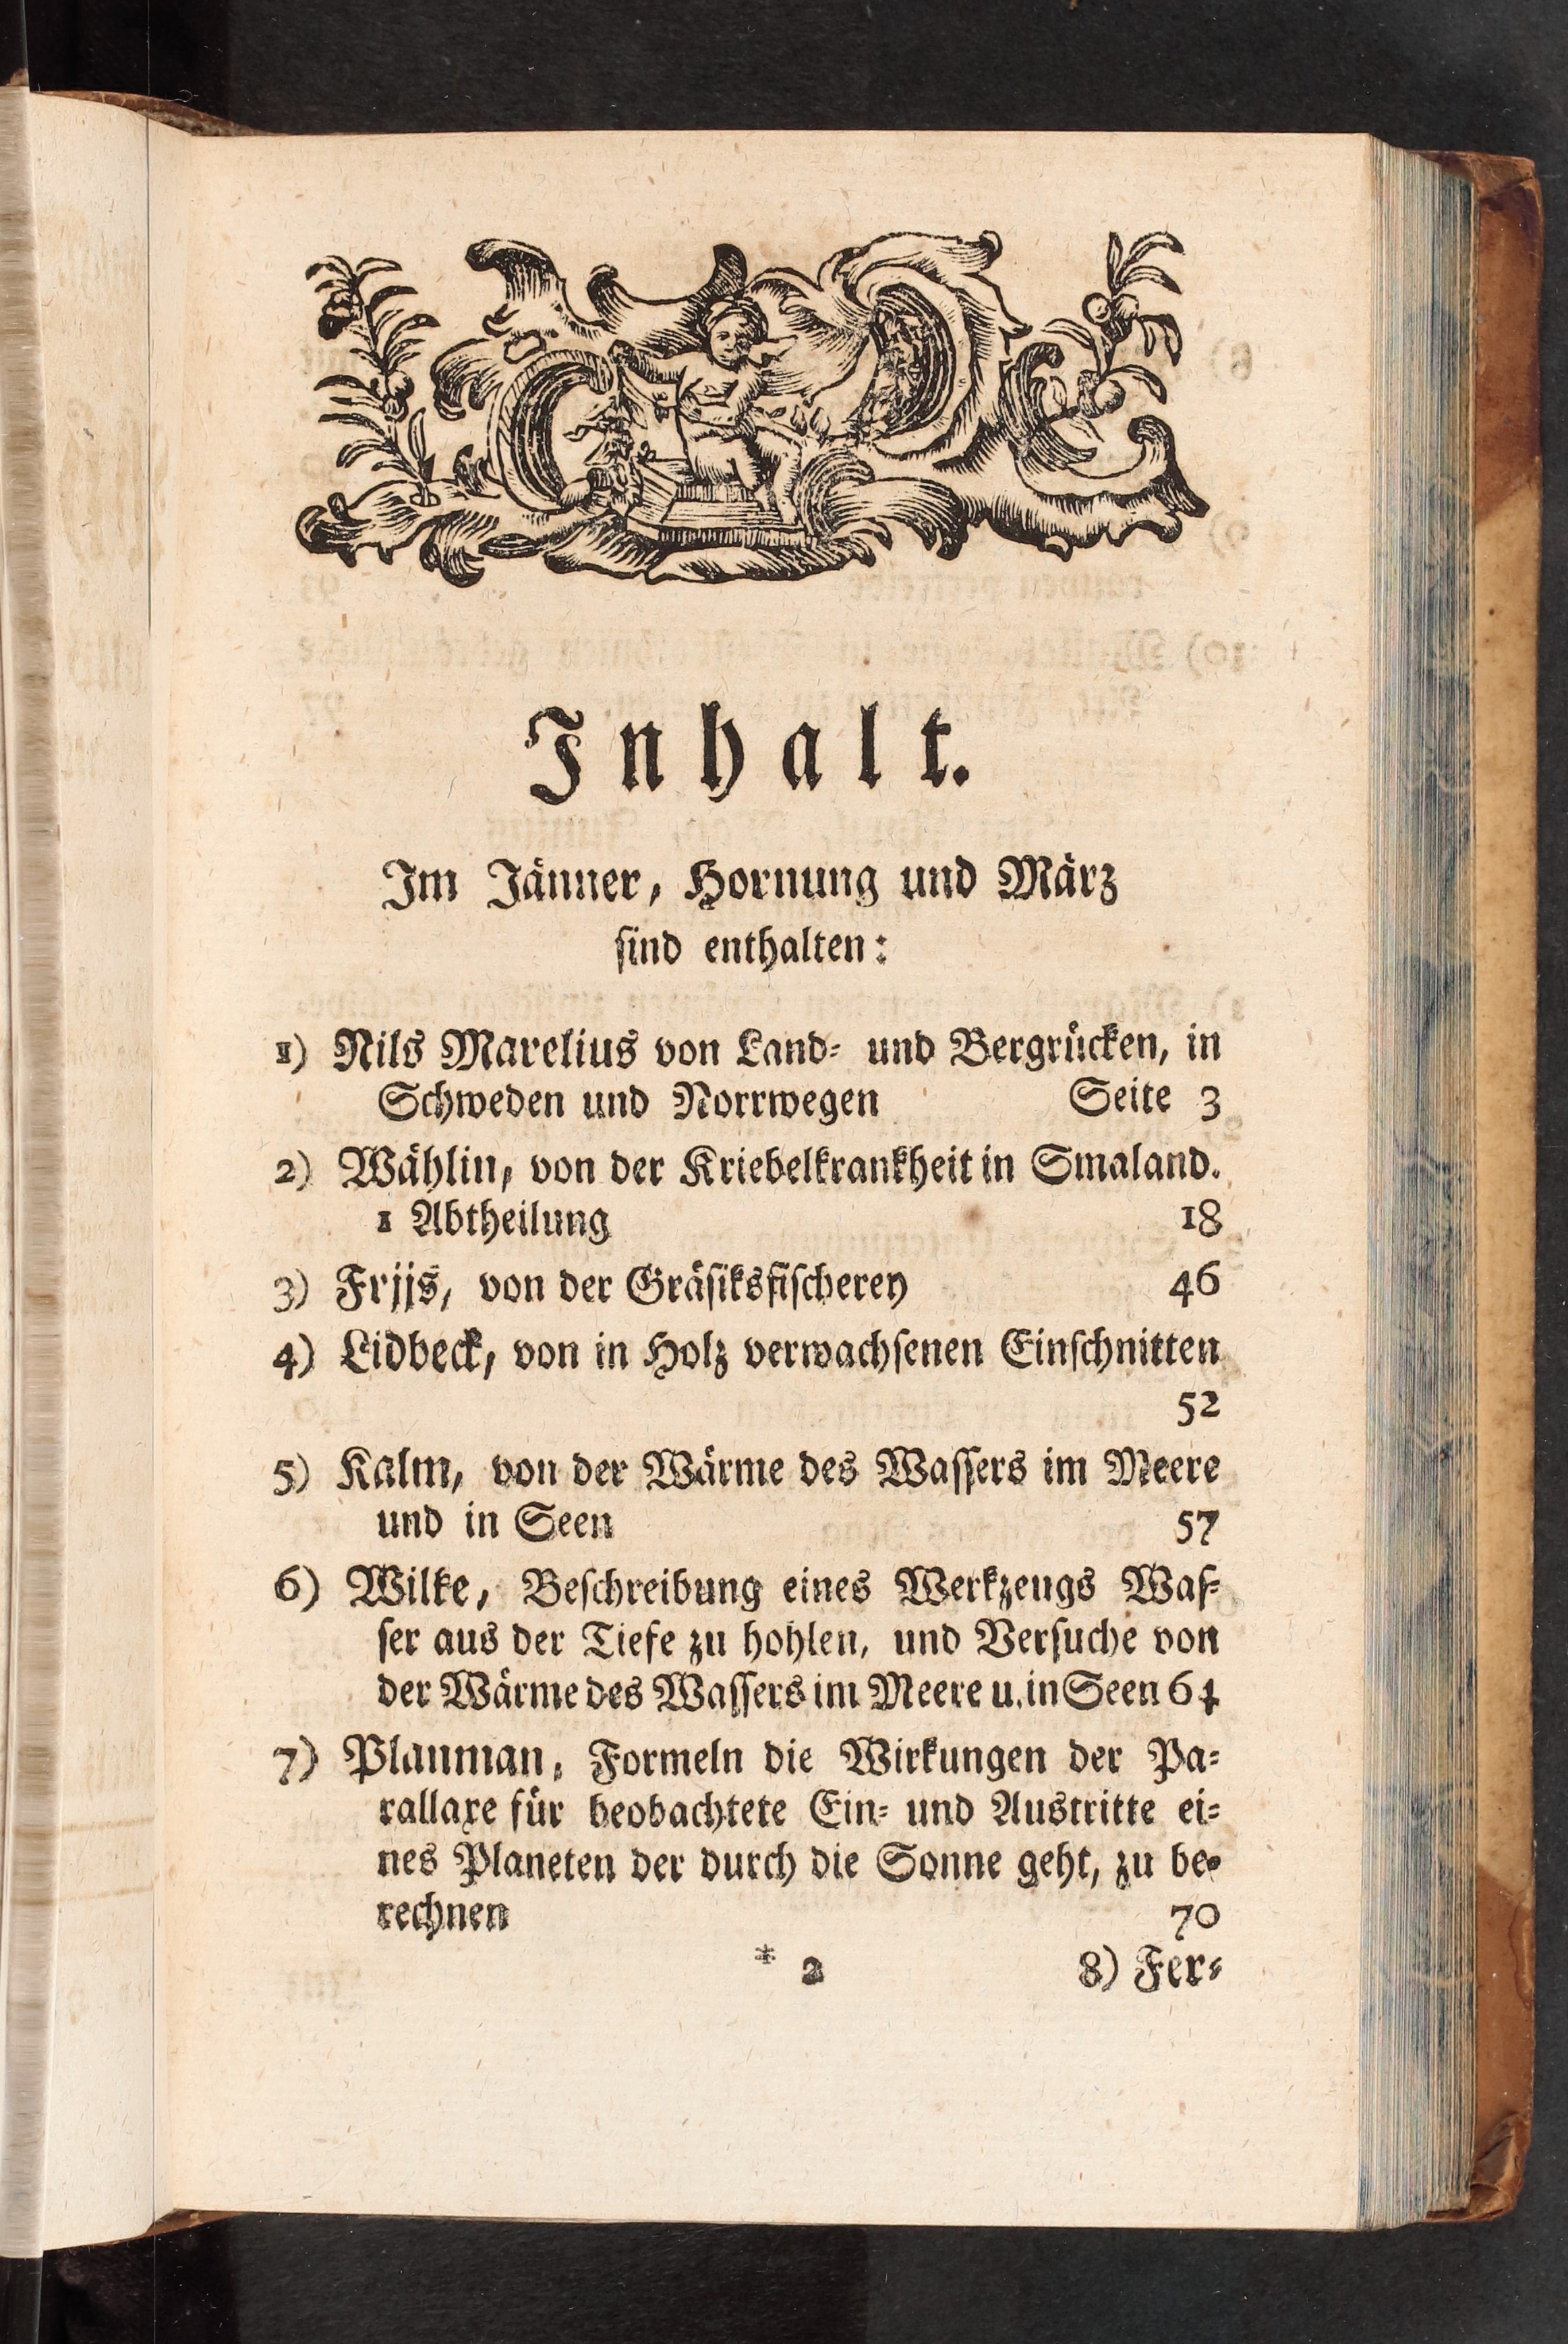 Inhalt.
Im Jänner, Hornung und März
sind enthalten:
1) Nils Marelius von Land- und Bergrücken, in
Schweden und Norrwegen Seite 3
2) Wåhlin, von der Kriebelkrankheit in Smaland.
1 Abtheilung 18
3) Frijs, von der Gräsiksfischerey 46
4) Lidbeck, von in Holz verwachsenen Einschnitten
52
5) Kalm, von der Wärme des Wassers im Meere
und in Seen 57
6) Wilke, Beschreibung eines Werkzeugs Was-
ser aus der Tiefe zu hohlen, und Versuche von
der Wärme des Wassers im Meere u. in Seen 64
7) Planman, Formeln die Wirkungen der Pa-
rallaxe für beobachtete Ein- und Austritte ei-
nes Planeten der durch die Sonne geht, zu be-
rechnen 70
* 2 8) Fer-